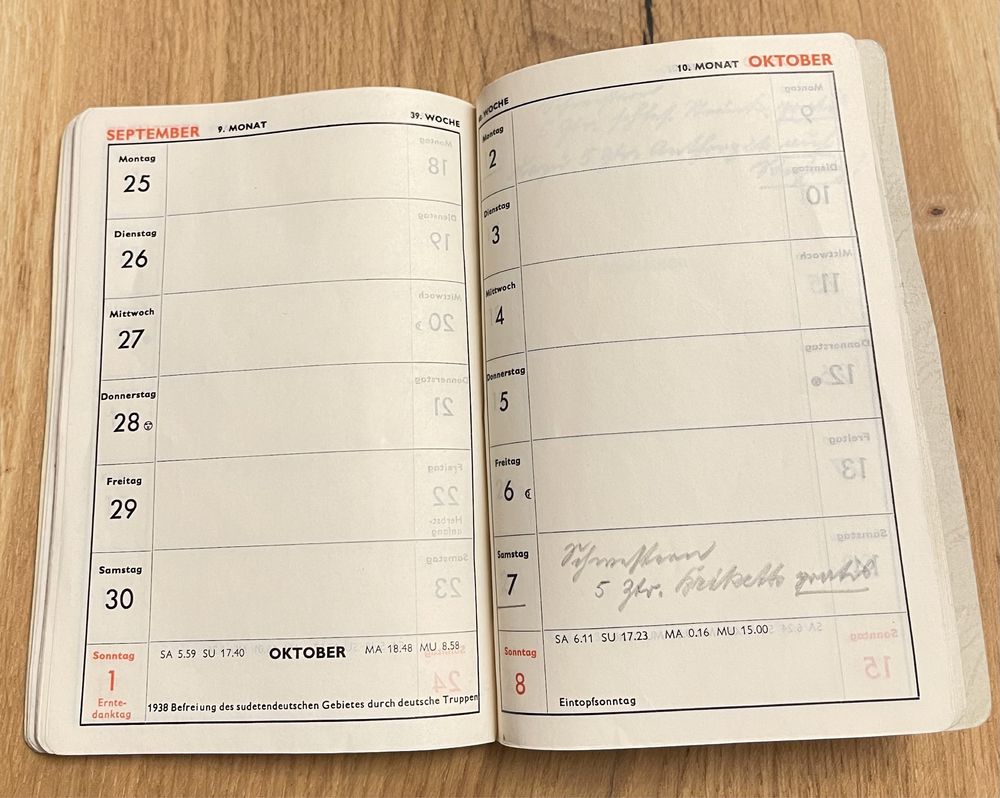 SEPTEMBER 9. MONAT 39. WOCHE
Montag
25
Dienstag
26
Mittwoch
27
Donnerstag
28
Freitag
29
Samstag
30
Sonntag
1
Ernte-
danktag
SA 5.59 SU 17.40 OKTOBER MA 18.48 MU 8.58
1938 Befreiung des sudetendeutschen Gebietes durch deutsche Truppen
WOCHE 10. MONAT OKTOBER
Montag
2
Dienstag
3
Mittwoch
4
Donnerstag
5
Freitag
6
Samstag
7
Schwestern
5 Ztr. Briketts gratis
Sonntag
8
SA 6.11 SU 17.23 MA 0.16 MU 15.00
Eintopfsonntag